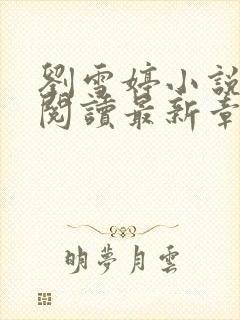 劉雪婷小説
閱讀最新章
明夢月雲